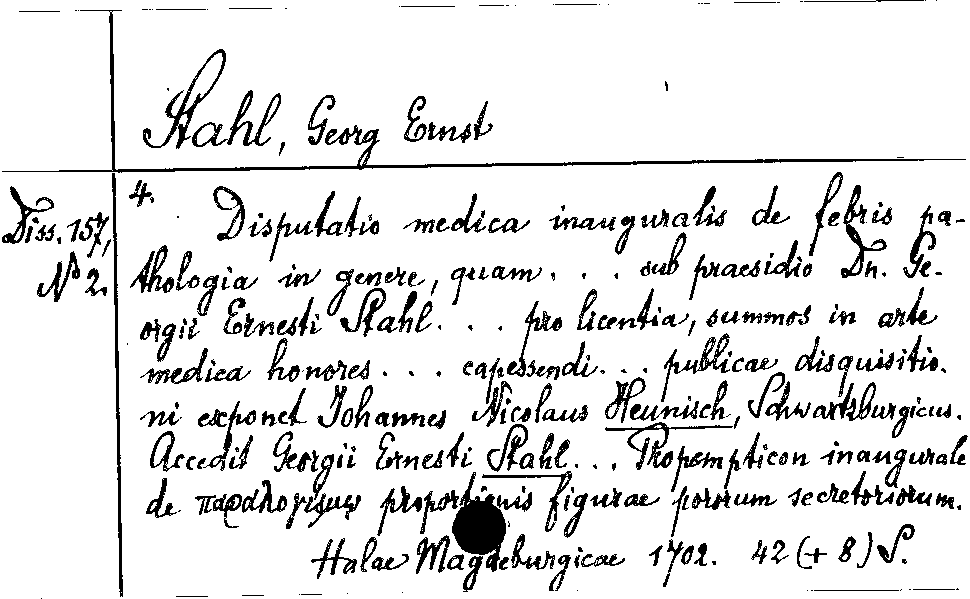 Stahl, Georg Ernst
Diss. 157,
No 2.
4. Disputatio medica inauguralis de febris pa-
thologia in genere, quam . . . sub praesidio Dn. Ge-
orgii Ernesti Stahl . . . pro licentia, summos in arte
medica honores . . . capessendi . . . publicae disquisitio-
ni exponet Johannes Nicolaus Heunisch, Schwartzburgicus.
Accedit Georgii Ernesti Stahl . . . Propempticon inaugurale
de παραλογισμῳ proportionis figurae pororum secretoriorum.
Halae Magdeburgicae 1702. 42 (+ 8) S.